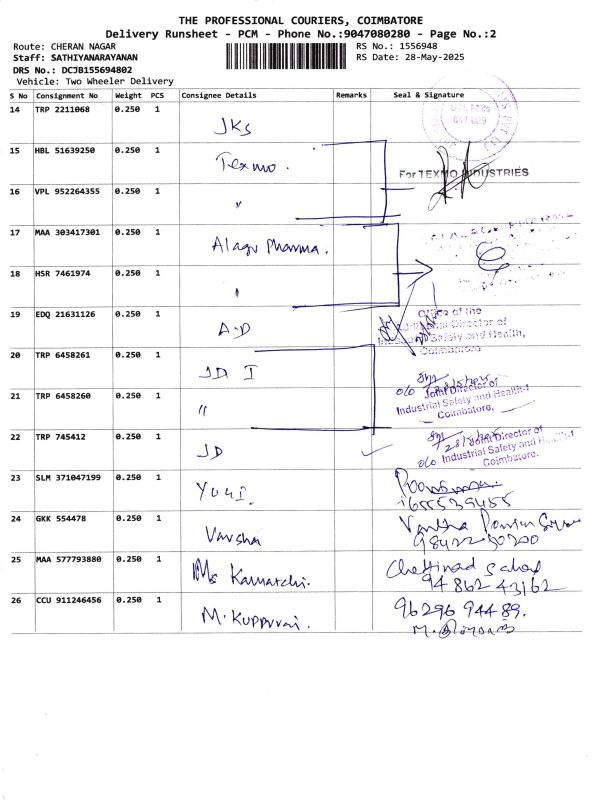 THE PROFESSIONAL COURIERS, COIMBATORE
Delivery Runsheet - PCM - Phone No.:9047080280 - Page No.:2
Route: CHERAN NAGAR
RS No.: 1556948
Staff: SATHIYANARAYANAN
RS Date: 28-May-2025
DRS No.: DCJB155694802
Vehicle: Two Wheeler Delivery
S No Consignment No Weight PCS Consignee Details Remarks Seal & Signature
14 TRP 2211068 0.250 1
JKS
15 HBL 51639250 0.250 1
Texmo.
For TEXMO INDUSTRIES
16 VPL 952264355 0.250 1
"
17 MAA 303417301 0.250 1
Alagu Pharma.
18 HSR 7461974 0.250 1
"
19 EDQ 21631126 0.250 1
A.D
Office of the
Additional Director of
Industrial Safety and Health,
Coimbatore
20 TRP 6458261 0.250 1
JD I
21 TRP 6458260 0.250 1
"
o/o Joint Director of
Industrial Safety and Health-I
Coimbatore,
22 TRP 745412 0.250 1
JD
o/o Joint Director of
Industrial Safety and Health-I
Coimbatore.
23 SLM 371047199 0.250 1
Yuvi.
24 GKK 554478 0.250 1
Varsha
25 MAA 577793880 0.250 1
Ms Kamatchi.
Chettinad
94862 43162
26 CCU 911246456 0.250 1
M. Kuppurai.
96296 94489.